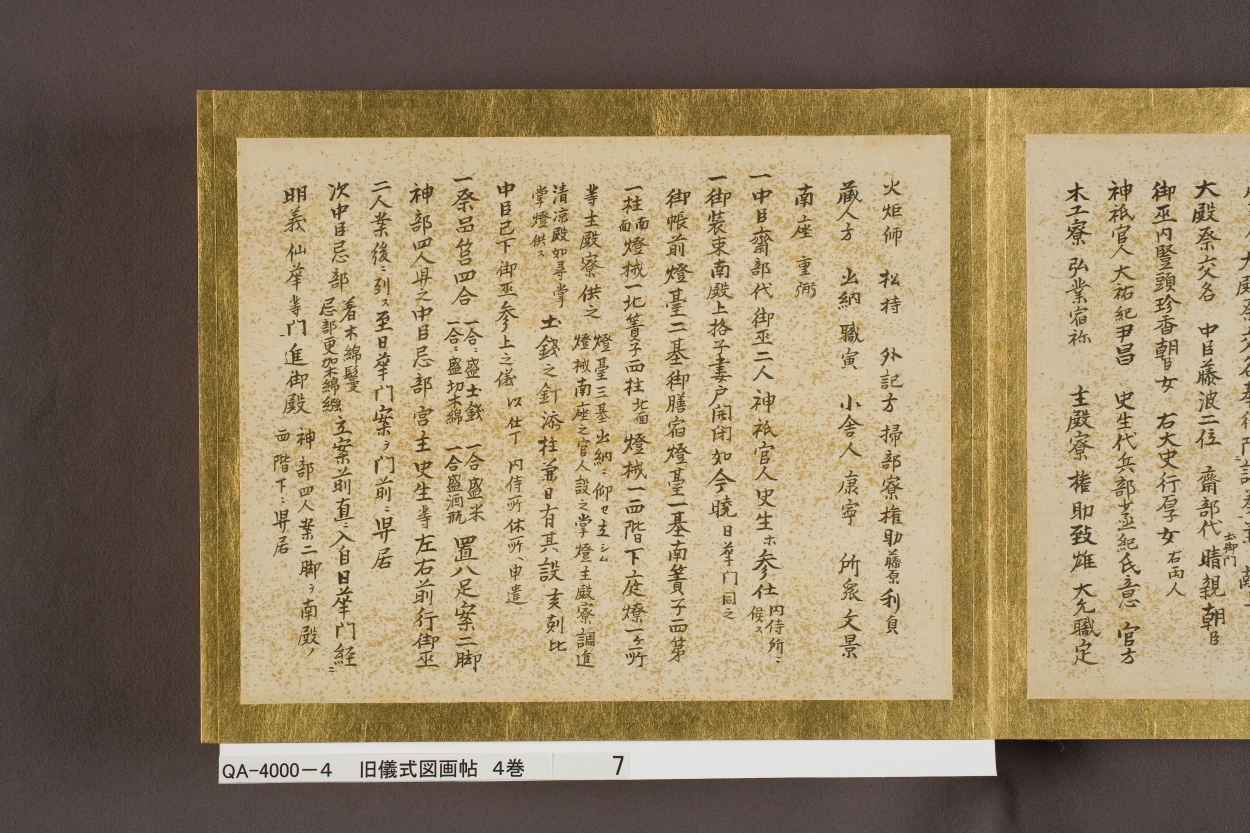 大殿祭交名 中臣藤波二位 齋部代 土御門 晴親朝臣
御巫内竪頭珍香朝臣女 右大史行厚女 右両人
神祇官人大祐紀尹昌 史生代兵部少丞紀氏意 官方
木工寮 弘業宿祢 主殿寮 権助致雄 大允職定
火炬師 松持 外記方 掃部寮権助 藤原 利貞
蔵人方 出納 職寅 小舎人 康寧 所衆 文景
南座 重弼
一中臣齋部代御巫二人神祇官人史生ホ参仕 内侍所ニ候ス
一御装束南殿上格子妻戸開閉如今暁 日華門同之
御帳前燈臺二基御膳宿燈臺一基南簀子西第
一柱 南面 燈械一北簀子西柱 北面 燈械一西階下庭燎一ヶ所
等主殿寮供之 燈臺三基出納ニ仰セ立シム 燈械南座之官人設之掌燈主殿寮調進
清凉殿如尋常掌燈供ス 土錢之針添柱兼日有其設 亥刻比
中臣已下御巫参上之儀 以仕丁 内侍所休所ニ申遣
一祭品筥四合 一合ニ盛土錢 一合ニ盛切木綿 一合盛米 一合盛酒瓶 置八足案二脚
神部四人舁之中臣忌部 宮主史生等左右前行御巫
二人案後ニ列ス至日華門案ヲ門前ニ舁居
次中臣忌部 着木綿鬘 忌部更加木綿繦 立案前直ニ入自日華門経
明義仙華等門進御殿 神部四人案二脚ヲ南殿ノ西階下ニ舁居
QA-4000-4 旧儀式図画帖 4巻 7